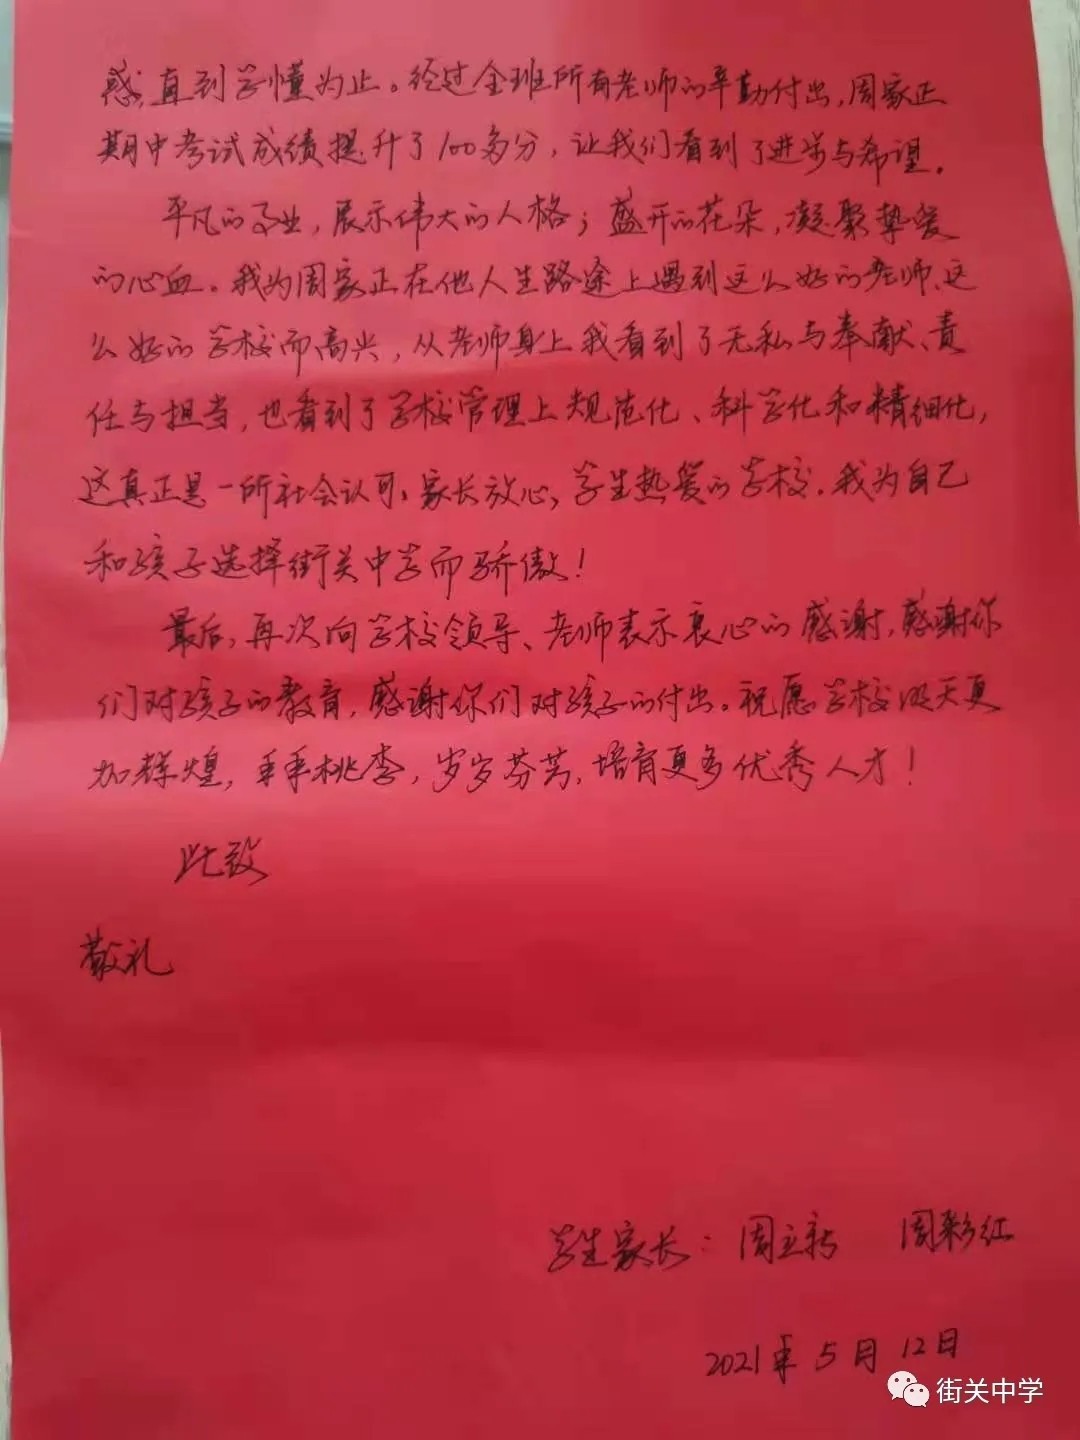 惑,直到学懂为止。经过全班所有老师的辛勤付出,周家正
期中考试成绩提升了100多分,让我们看到了进步与希望。
平凡的事业,展示伟大的人格;盛开的花朵,凝聚挚爱
的心血。我为周家正在他人生路途上遇到这么好的老师、这
么好的学校而高兴,从老师身上我看到了无私与奉献、责
任与担当,也看到了学校管理上规范化、科学化和精细化,
这真正是一所社会认可、家长放心、学生热爱的学校。我为自己
和孩子选择街关中学而骄傲!
最后,再次向学校领导、老师表示衷心的感谢,感谢你
们对孩子的教育,感谢你们对孩子的付出。祝愿学校明天更
加辉煌,年年桃李,岁岁芬芳,培育更多优秀人才!
此致
敬礼
学生家长:周立新 周彩红
2021年5月12日
街关中学